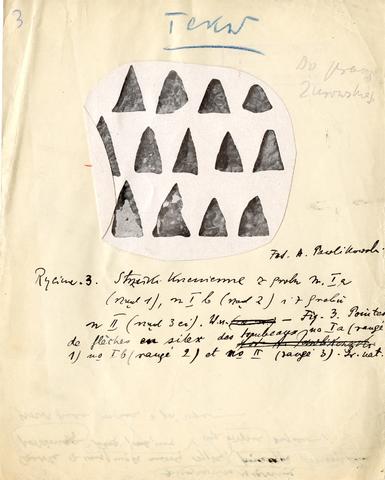 3
Tekst
Do pracy
Żurowskiej
Fot. A. Pawlikowski.
Rycina. 3. Strzałki krzemienne z grobu nr. I a
(rząd 1), nr I b (rząd 2) i z grobu
nr II (rząd 3 ci). W. n. — Fig. 3. Pointes
de flèches en silex des tombeaux no Ia (rangé
1) no Ib (rangé 2) et no II (rangé 3). Gr. nat.